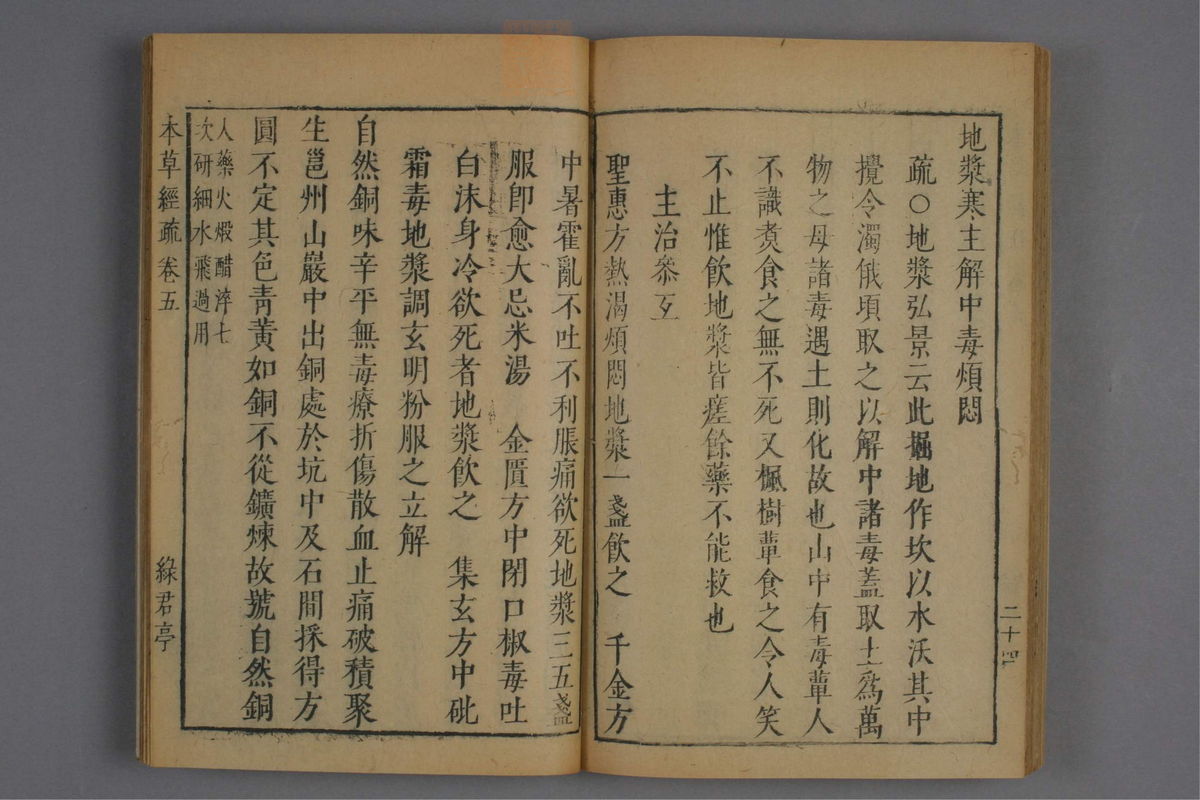 地漿寒主解中毒煩悶
疏○地漿弘景云此掘地作坎以水沃其中
攪令濁俄頃取之以解中諸毒蓋取土爲萬
物之母諸毒遇土則化故也山中有毒蕈人
不識煑食之無不死又楓樹蕈食之令人笑
不止惟飲地漿皆瘥餘藥不能救也
主治叅互
聖惠方熱渴煩悶地漿一盞飲之　千金方
二十四
中暑霍亂不吐不利脹痛欲死地漿三五盞
服卽愈大忌米湯　金匱方中閉口椒毒吐
白沫身冷欲死者地漿飲之　集玄方中砒
霜毒地漿調玄明粉服之立解
自然銅味辛平無毒療折傷散血止痛破積聚
生邕州山巖中出銅處於坑中及石間採得方
圓不定其色靑黃如銅不從鑛煉故號自然銅
人藥火煅醋淬七
次研細水飛過用
本草經疏　卷五　綠君亭